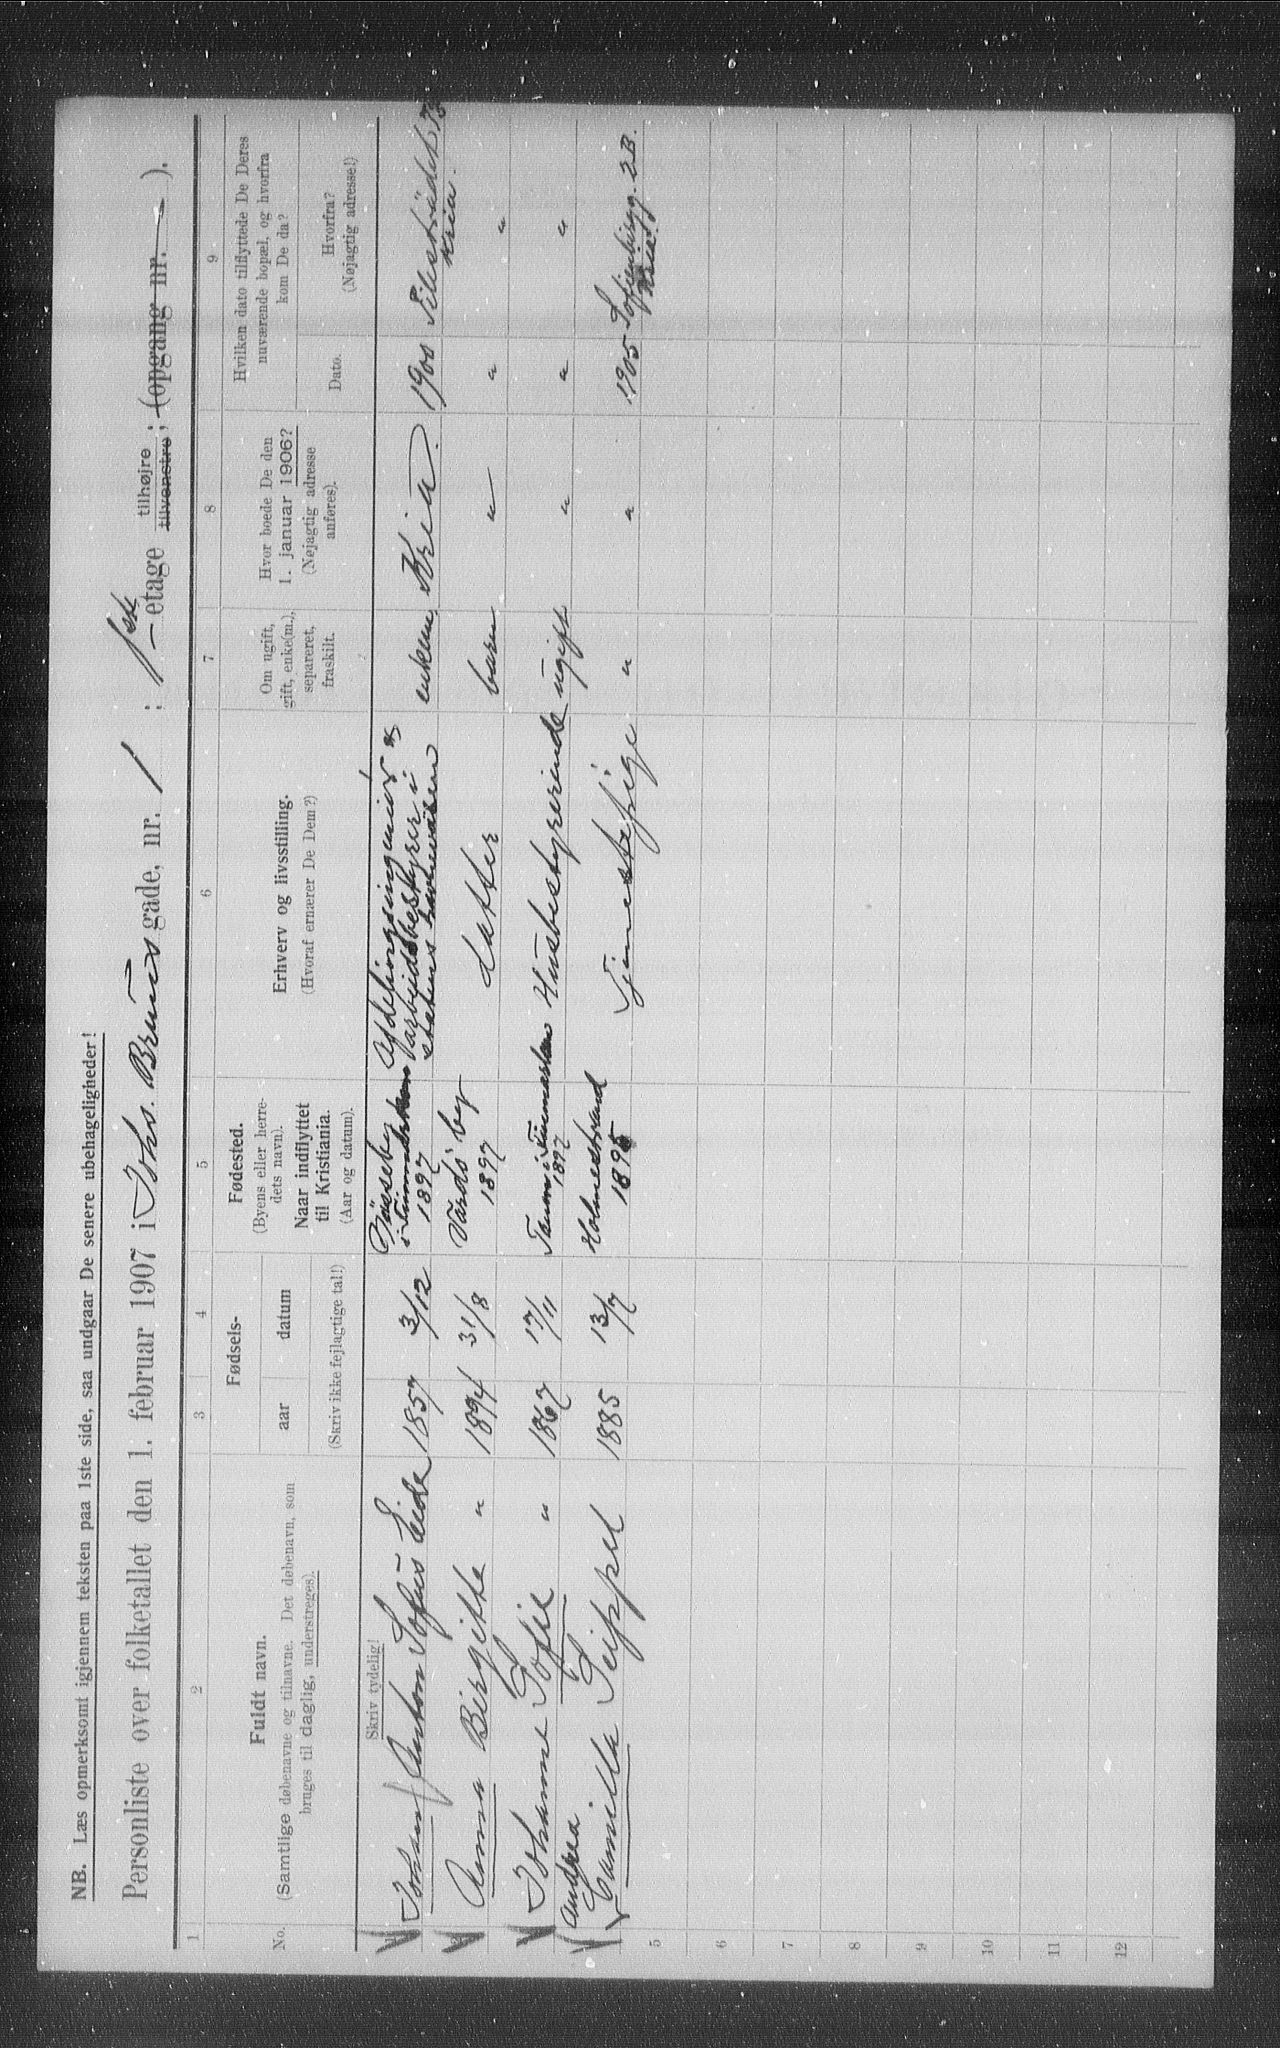 NB. Læs opmerksomt igjennem teksten paa 1ste side, saa undgaar De senere ubehageligheder!
Personliste over folketallet den 1. februar 1907 i Johs. Bruns gade, nr. 1 ; 1ste etage tilhøjre tilvenstre; (opgang nr. — ).
1 2 3 4 5 6 7 8 9
No.
Fuldt navn.
(Samtlige døbenavne og tilnavne. Det døbenavn, som
bruges til daglig, understreges).
Fødsels-
aar datum
(Skriv ikke fejlagtige tal!)
Fødested.
(Byens eller herre-
dets navn).
Naar indflyttet
til Kristiania.
(Aar og datum).
Erhverv og livsstilling.
(Hvoraf ernærer De Dem?)
Om ugift,
gift, enke(m.),
separeret,
fraskilt.
Hvor boede De den
1. januar 1906?
(Nøjagtig adresse
anføres).
Hvilken dato tilflyttede De Deres
nuværende bopæl, og hvorfra
kom De da?
Dato.
Hvorfra?
(Nøjagtig adresse!)
Skriv tydelig!
Johan Anton Sofus 1857 3/12
i Finmarken 1897
Afdelingsingeniør &
arbeidsbestyrer i
statens havnevæsen
enkem. Kria. 1900 Pilestrædet 73
Kria.
Anna Birgitte " 1894 31/8 Vardø by
1897
datter barn " " "
Johanne Sofie " 1867 17/11 Tanen i Finmarken
1897
Husbestyrerinde ugift " " "
Andrea
Camilla Seippel 1885 13/7 Holmestrand
1895
Tjenestepige " " 1905 Sofienbergg. 2B.
Kria.
5
6
7
8
9
10
11
12